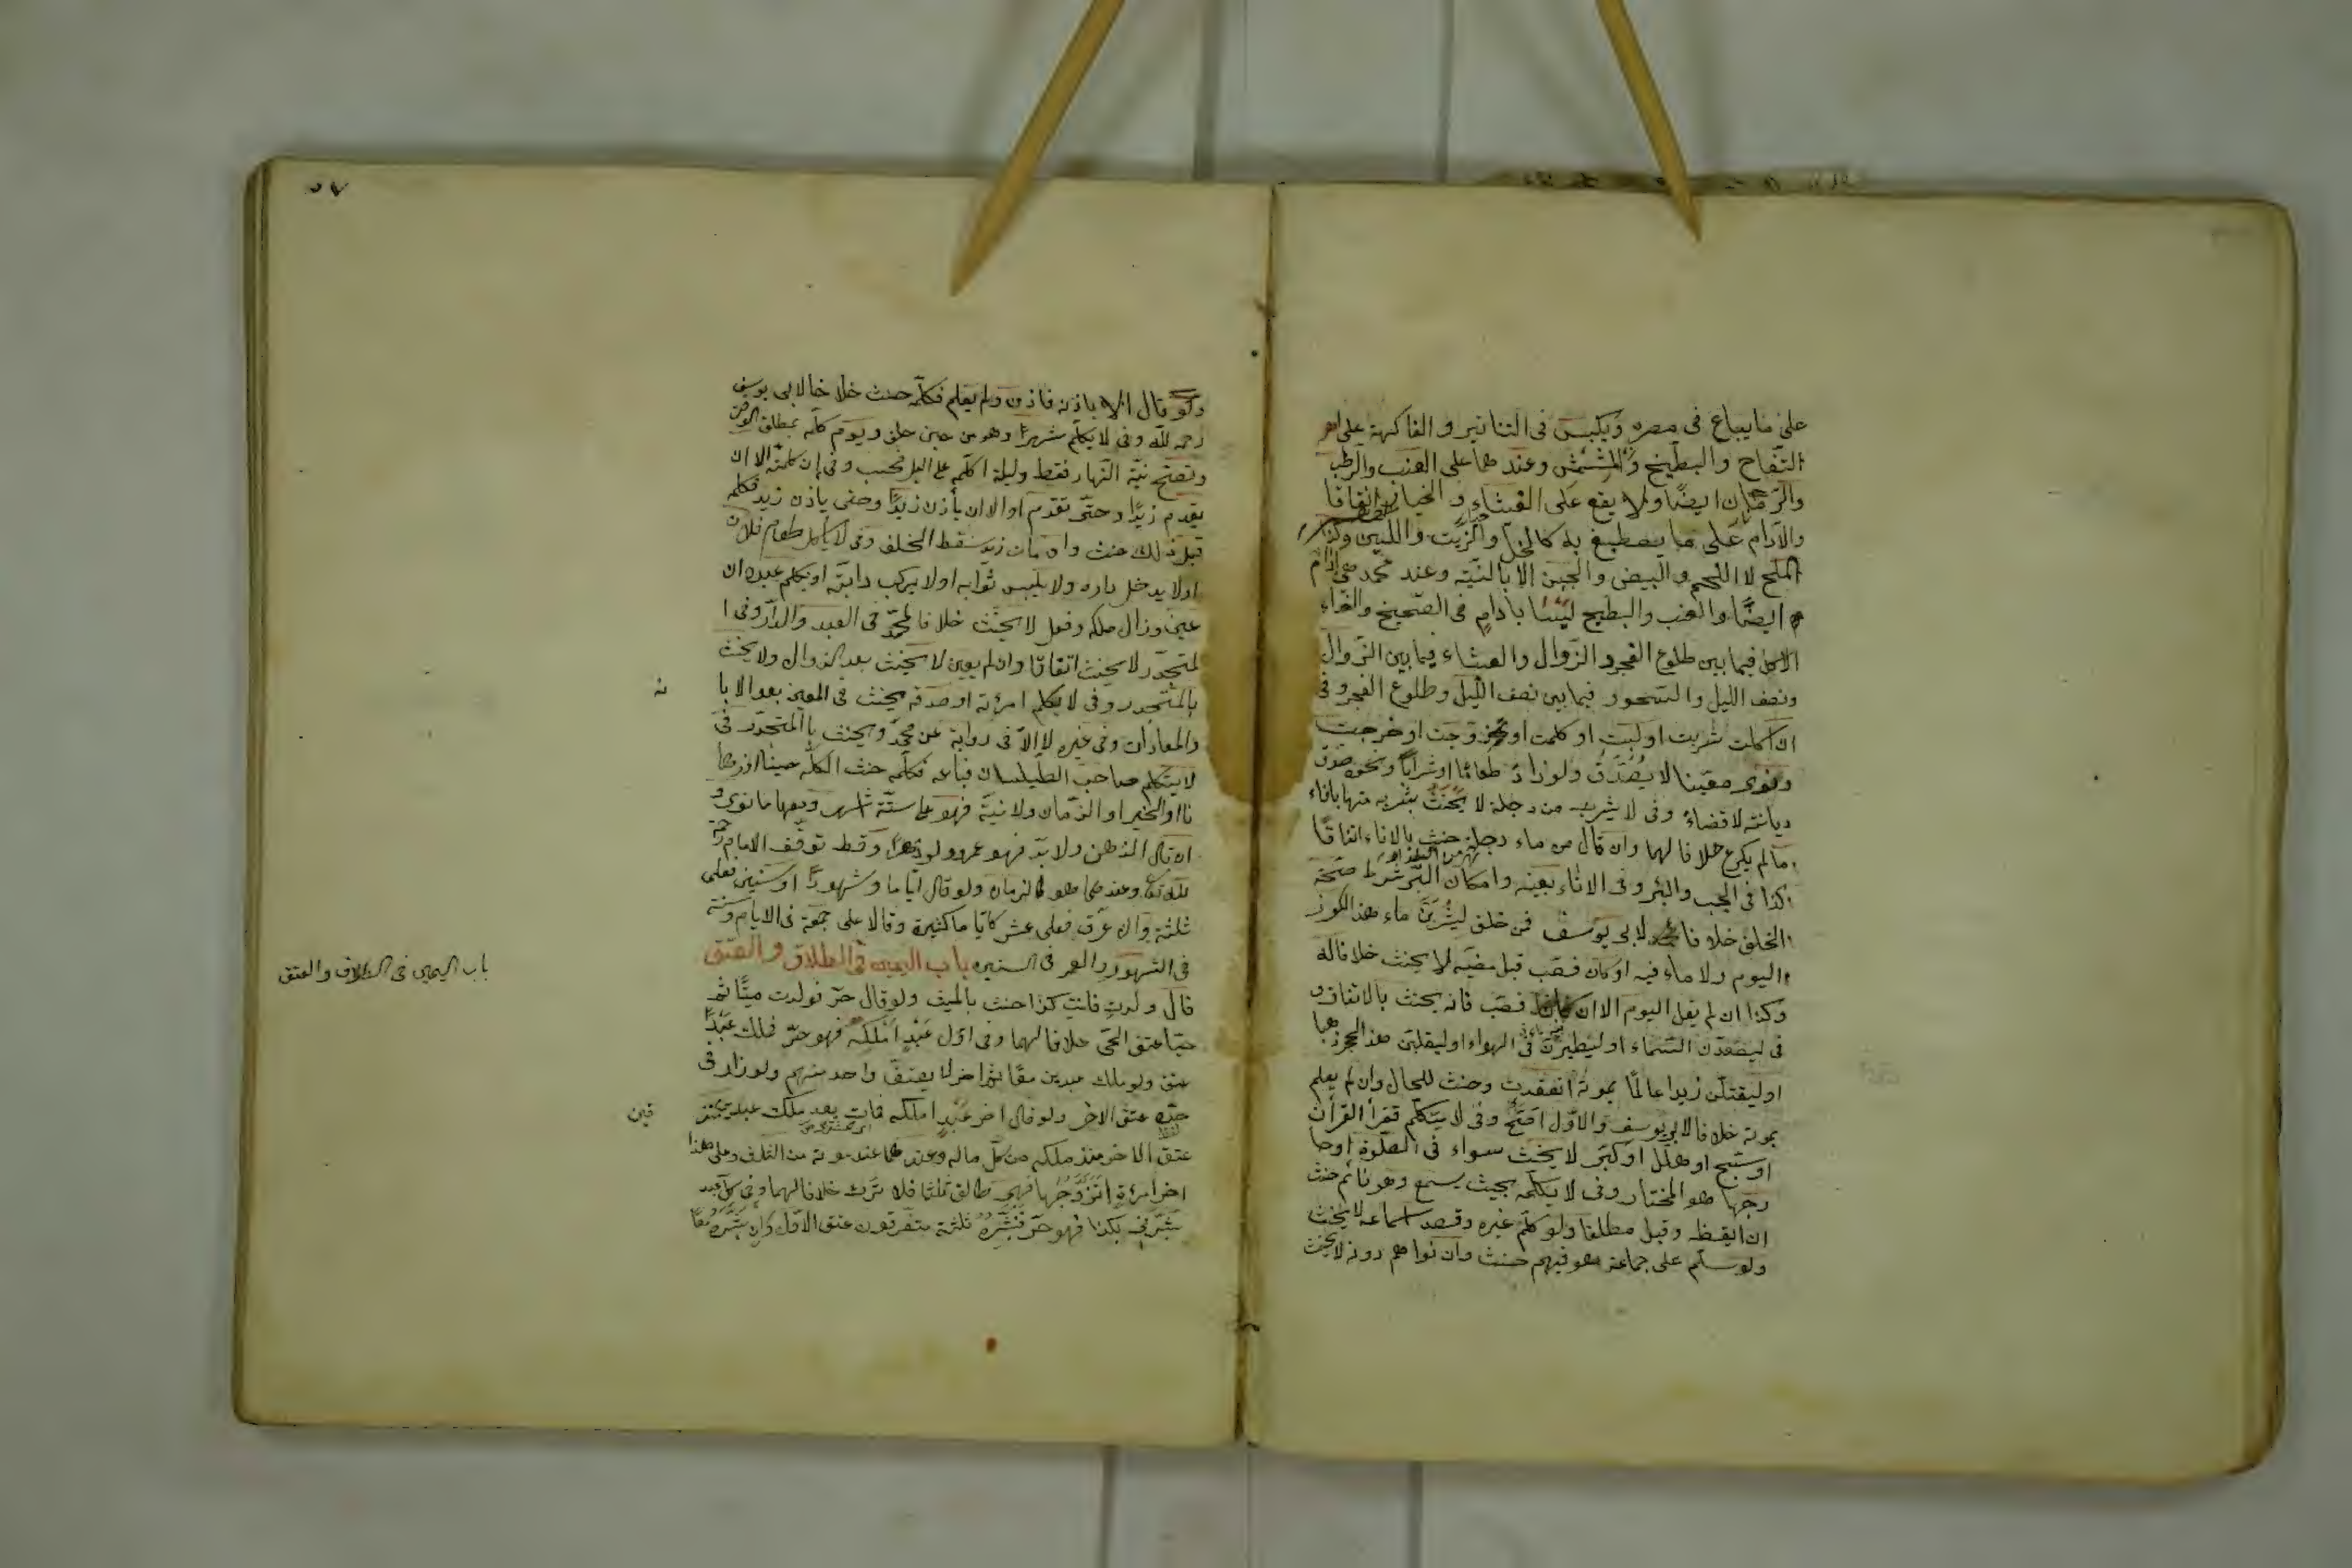 على ما يباع فى مصره ويكبس فى التنانير و الفاكهة على
التفاح والبطيخ والمشمش وعندهما على العنب والرطب
والرمان ايضا ولا يقع على القثاء و الخيار اتفاقا
والادام على ما يصطبغ به كالخل والزيت واللبن وكذا
الملح لا اللحم والبيض والجبن الا بالنية وعند محمد هى ادام
ايضا والعنب والبطيخ ليسا بادام فى الصحيح والغداء
الاكل فيما بين طلوع الفجر والزوال والعشاء فيما بين الزوال
ونصف الليل والسحور فيما بين نصف الليل وطلوع الفجر وفى
ان اكلت شربت او لبست او كلمت او تزوجت او خرجت
ونوى معينا لا يصدق ولو زاد طعاما او شرابا ونحوه صدق
ديانة لا قضاء وفى لا يشرب من دجلة لا يحنث بشربه منها باناء
ما لم يكرع خلافا لهما وان قال من ماء دجلة حنث بالاناء اتفاقا
كذا فى الجب والبئر وفى الاناء بعينه وامكان البر شرط صحة
الحلف خلافا لابى يوسف فمن حلف ليشربن ماء هذا الكوز
اليوم ولا ماء فيه او كان فصب قبل مضيه لا يحنث خلافا له
وكذا ان لم يقل اليوم الا ان كان فصب فانه يحنث بالاتفاق و
فى ليصعدن السماء او ليطيرن فى الهواء او ليقلبن هذا الحجر ذهبا
او ليقتلن زيدا عالما بموته انعقدت وحنث للحال وان لم يعلم
بموته خلافا لابى يوسف والاول اصح وفى لا يتكلم فقرأ القرآن
او سبح او هلل او كبر لا يحنث سواء فى الصلوة او خا
رجها هو المختار وفى لا يكلمه بحيث يسمع وهو نائم حنث
ان ايقظه وقيل مطلقا ولو كلم غيره وقصد اسماعه لا يحنث
ولو سلم على جماعة هو فيهم حنث وان نواهم دونه لا يحنث
٥٧
ولو قال الا باذنه فاذن ولم يعلم فكلمه حنث خلافا لابى يوسف
رحمه الله وفى لا يكلم شهرا وهو من حين حلف ويوم كلمه لمطلق الوقت
وتصح نية النهار فقط وليلة اكلمه على الليل فحسب وفى ان كلمته الا ان
يقدم زيد او حتى تقدم او الا ان يأذن زيد او حتى يأذن زيد فكلمه
قبل ذلك حنث وان مات زيد سقط الحلف وفى لا يأكل طعام فلان
او لا يدخل داره ولا يلبس ثوابه او لا يركب دابته او يكلم عبده ان
عين وزال ملكه وفعل لا يحنث خلافا لمحمد فى العبد والدار وفى ا
لمتجدد لا يحنث اتفاقا وان لم يعين لا يحنث بعد الزوال ولا يحنث
بالمتجدد وفى لا يكلم امرأته او صدقه يحنث فى المعين بعد الابا
نه
والمعادات وفى غيره لا الا فى رواية عن محمد ويحنث باالمتجدد فى
لا يتكلم صاحب الطيلسان فباعه فكلمه حنث الكله حينا او زما
نا او الخير او الزمان ولا نية فهو على ستة اشهر ومعها ما نوى و
ان قال الدهر ولا بد فهو عمر ولو دهرا وقط توقف الامام رحمه
الله تعا وعندهما هو كالزمان ولو قال اياما وشهورا او سنين فعلى
ثلثة وان عرف فعلى عشر كايا ما كثيرة وقالا على جمعة فى الايام وسنة
فى الشهور والعمر فى السنين باب اليمين فى الطلاق والعتق
باب اليمين فى الطلاق والعتق
قال ولدت فانت كذا حنث بالميت ولو قال حر فولدت ميتا ثم
حيا عتق الحى خلافا لهما وفى اول عبد املكه فهو حر فملك عبدا
عتق ولو ملك عبدين معا ثم اخر لا يعتق واحد منهم ولو زاد فى
حده عتق الاخر ولو قال اخر عبد املكه فمات بعد ملك عبدين
فين
عتق الاخر منذ ملكه من كل ماله وعندهما عند موته من الثلث وعلى هذا
اخر امرءة اتزوجها فهى طالق ثلثا فلا ترث خلافا لهما وفى كل عبد
بشرنى بكذا فهو حر فبشره ثلثة متفرقون عتق الاول وان بشره معا